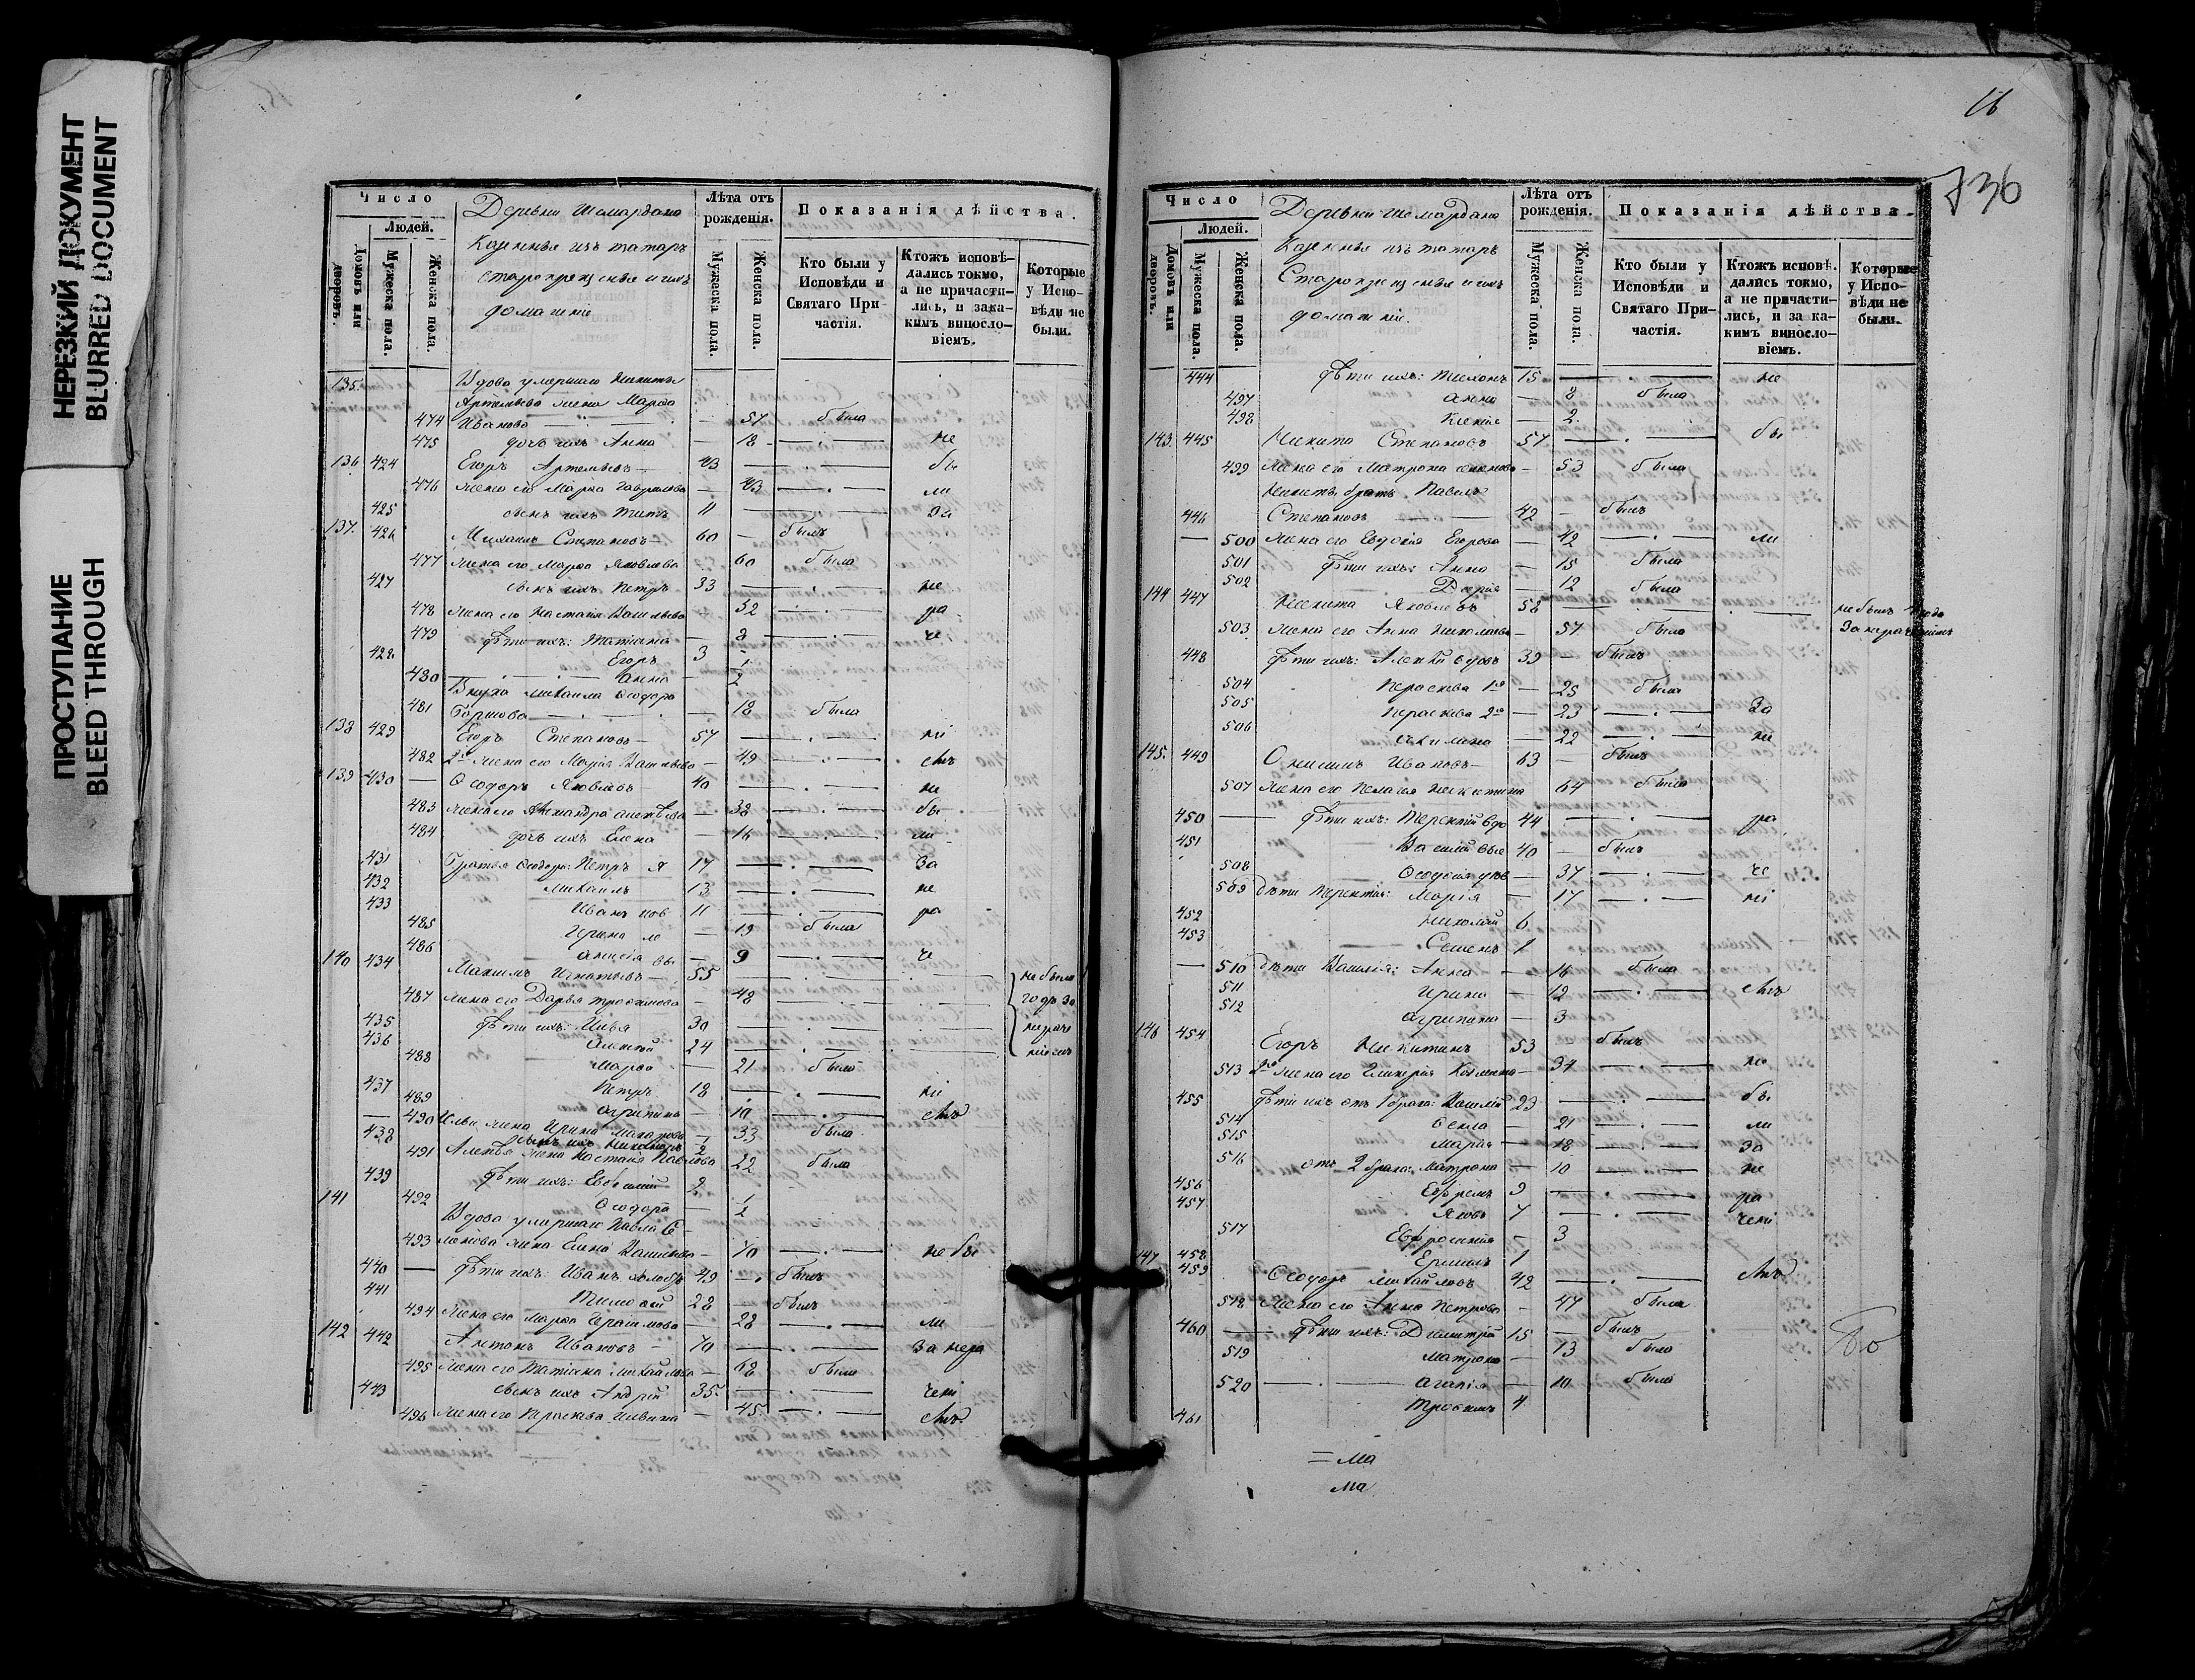 НЕРЕЗКИЙ ДОКУМЕНТ
BLURRED DOCUMENT
ПРОСТУПАНИЕ
BLEED THROUGH
Число
Людей.
Домовъ или дворовъ.
Мужеска пола.
Женска пола.
Деревни Шемардана
Казенные изъ татаръ
старокрещеные и ихъ
домашніе
Лѣта отъ рожденія.
Мужеска пола.
Женска пола.
Показанія дѣйства.
Кто были у Исповѣди и Святаго Причастія.
Ктожъ исповѣдались токмо, а не причастились, и за какимъ винословіемъ.
Которые у Исповѣди не были.
135. Вдова умершаго Никиты
Артемьева жена Марѳа
474 Иванова — 57 была
475 дочь ихъ Анна — 18 — не
136 424 Егоръ Артемьевъ — 43 — бы
476 жена его Марѳа Гаврилова — 43 — ли
425 сынъ ихъ Титъ 11 — за
137. 426 Михаилъ Степановъ — 60 — былъ
477 жена его Марѳа Яковлева 60 была
427 сынъ ихъ Петръ 33 — не
478 жена его Настасія Васильева 32 — ра
479 дѣти ихъ: Татіана — 8 — че
428 Егоръ 3
480 Анна — 2
Сноха Михаила Ѳедора
481 — 18 была
138 429 Егоръ Степановъ — 57 — ні
482 2я жена его Марія Васильева — 49 — емъ
139 430 — Ѳеодоръ Яковлевъ 40 — не
483 жена его Александра — 38 — бы
484 дочь ихъ Елена — 16 — ли
431 Братья Ѳеодора: Петръ Я 17 — за
432 Михаилъ 13 — не
433 Иванъ ков 11 — ра
485 Ирина ле — 19 была
486 Анисія вы — 9 — че
140 434 Максимъ Игнатьевъ — 55 — не были
487 жена его Дарья Трофимова — 48 — года за
435 дѣти ихъ: Илья 30 — нераче
436 Алексѣй 24 — ніемъ
488 Марѳа — 21 была
437 Петръ 18 — ні
489 Агрипина — 10 — емъ
— 490 Ильи жена Ирина Макарова — 33 была
438 сынъ ихъ Никаноръ 2
491 Алексѣя жена Настасія Павлова 22 была
439 дѣти ихъ: Евфимій 2
141 492 Ѳеодора — 1
Вдова умершаго Павла Се-
493 менова жена Елена Васильева — 70 — не бы
440 — дѣти ихъ: Иванъ холостъ 49 — былъ
441 Тимоѳей 28 — былъ
494 жена его Марѳа Герасимова — 28 — ли
142 442 Антонъ Ивановъ — 70 — за нера
495 жена его Татіана Михайлова — 62 была
443 сынъ ихъ Андрей 35. — чені
496 жена его Прасковья Ильина — 45. — емъ
16
736
Число
Людей.
Домовъ или дворовъ.
Мужеска пола.
Женска пола.
Деревни Шемардана
Казенные изъ татаръ
Старокрещеные и ихъ
домашніе.
Лѣта отъ рожденія.
Мужеска пола.
Женска пола.
Показанія дѣйства.
Кто были у Исповѣди и Святаго Причастія.
Ктожъ исповѣ. дались токмо, а не причастились, и за какимъ винословіемъ.
Которые у Исповѣди не были.
444 дѣти ихъ: Тихонъ 15 — не
497 Анна — 8 была
498 Ксенія — 2.
143. 445 Никита Степановъ 57 — бы
499 жена его Матрона — 53 была
Никиты братъ Павелъ
446 Степановъ — 42 — былъ
— 500 жена его Евдокія Егорова — 42 — ли
501 дѣти ихъ: Анна — 15 была
502 Дарія — 12 была
144 447 Никита Яковлевъ 58 — не былъ года
503 жена его Анна Николаева — 57 была за нераченіемъ
448 дѣти ихъ: Алексѣй вдовъ 39 — былъ
504 Параскева 1я — 25 была
505 Параскева 2я — 23 — за
506 Акилина — 22 — не
145. 449 Онисимъ Ивановъ — 63 — былъ
507 жена его Пелагея Никитина 64 была
450 — дѣти ихъ: Терентій вдо 44 — ра
451 Василій вые 40 — былъ
508 Ѳеодосія дѣв — 37 — че
509 дѣти Терентія: Марія — 17 — ні
452 Николай 6
453 Семенъ 1
— 510 дѣти Василія: Анна — 16 была
511 Ирина — 12 — емъ
512 Агрипина — 3
146 454 Егоръ Никитинъ 53 былъ
513 2я жена его Гликерія Козмина — 34 — не
455 дѣти ихъ отъ 1 брака: Василій 23 — бы
514 Ѳекла — 21 — ли
515 Марія — 18 — за
516 отъ 2 брака: Матрона — 10 — не
456 Ефремъ 9 — ра
457 Яковъ 7 — чені
517 Евфросинія — 3
458 Ермилъ 1
147 459 Ѳеодоръ Михайловъ 42 — емъ
518 жена его Анна Петрова — 47 была
460 — дѣти ихъ: Димитрій 15 — былъ
519 Матрона — 13 была
520 — Агапія — 10 была
461 Трофимъ 4
= ма
ма